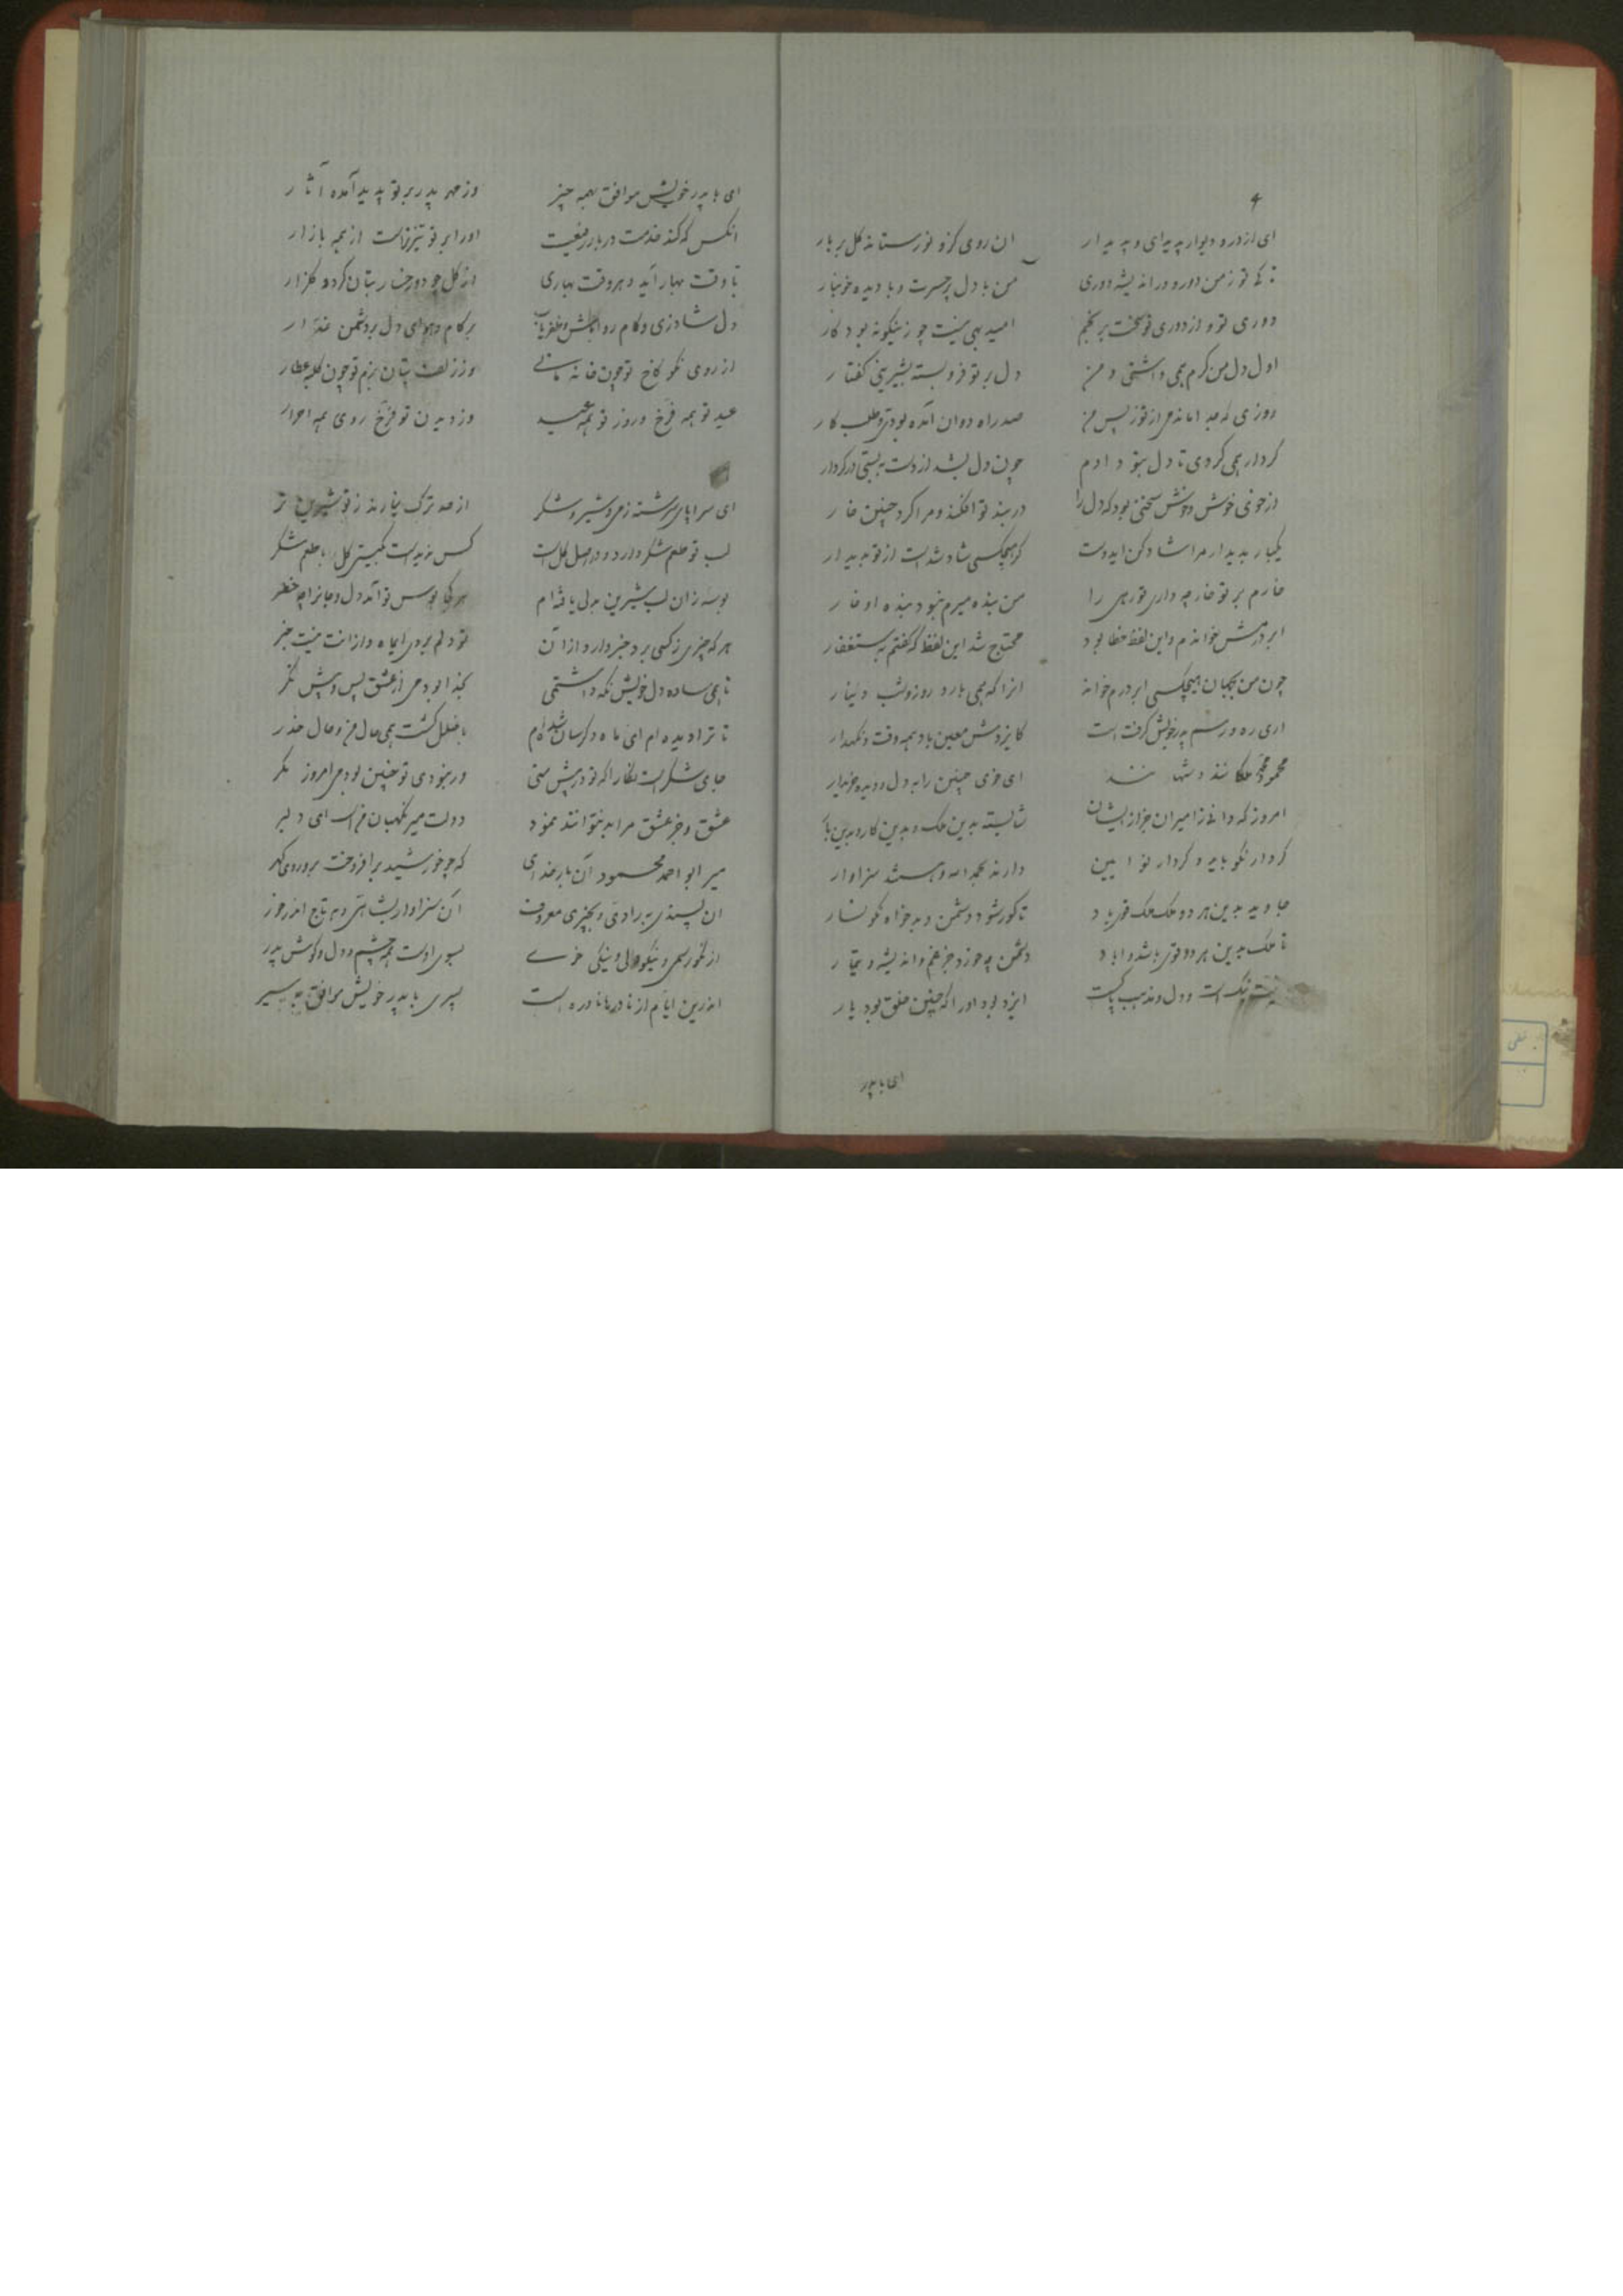 ای از در و دیوار پدیدار
ان روی کزو نورستاند گل بر بار
تا کی تو ز من دور و در اندیشه دوری
من با دل پر حسرت و با دیده خونبار
دوری تو و از دوری تو سخت برنجم
امید بهی نیست چو زینگونه بود کار
اول دل من گرم همی داشتی و من
دل بر تو فرو بسته بشیرینی گفتار
روزی که جدا ماندمی از تو ز پس من
صد راه دوان آمده بودی و طلب کار
کردار همی کردی تا دل بتو دادم
چون دل بشد از دست ببستی در کردار
از خوی خوش و منش سختی بود که دل را
در بند تو افکند و مرا کرد چنین خار
یکبار بدیدار مرا شاد کن ایدوست
گر هیچکسی شاد شد است از تو بدیدار
خارم بر تو خار چه داری تو رهی را
من بنده میرم نبود بنده او خار
ابر درمش خواندم و این لفظ خطا بود
محتاج شد این لفظ که گفتم به ستغفار
چون من بجهان هیچکسی ابر درم خواند
انرا که همی بارد روز و شب دینار
اری ره و رسم پدر خویش گرفت است
کایزدش معین باد بهمه وقت و نگهدار
محمود محمد ملکا نند و شها نند
ای خوی چنین را به دل و دیده خریدار
امروز که دانی ز امیران جز از ایشان
شایسته بدین ملک و بدین کار و بدین با
کردار نکو باید و کردار نو ایین
دارند بحمد الله و هستند سزاوار
جاوید بدین هر دو ملک ملک قوی باد
تا کور شود دشمن و بدخواه نگونسار
تا ملک بدین هر دو قوی باشد و اباد
دشمن چه خورد جز غم و اندیشه و تیمار
نیت نیک است و دل و مذهب پاکست
ایزد بود اورا که چنین خلق بود یار
ای با پدر
ای با پدر خویش موافق بهمه چیز
وز مهر پدر بر تو پدید آمده آثار
انکس که کند خدمت دربار رفیعت
اورا بر تو تیزتر است از همه بازار
تا وقت بهار آید و هر وقت بهاری
از گل چو دو رخسار بتان گردد گلزار
دل شاد زی و کام روا باش و ظفر یاب
بر کام و هوای دل بر دشمن غدار
از روی نکو کاخ تو چون خانه مانی
وز زلف بتان بزم تو چون کلبه عطار
عید تو همه فرخ و روز تو همه عید
وز دیدن تو فرخ روی همه احرار
ای سراپای سرشته ز می و شیر و شکر
از صد ترک بیارند ز تو شیرین تر
لب تو طعم شکر دارد و در اصل گل است
کس ندیدست بگیتی گل با طعم شکر
بوسه زان لب شیرین بدلی یافته ام
هر کجا بوس تو آمد دل و جانرا چه خطر
هر که چیزی ز کسی برد خبر دارد از ان
تو دلم بردی ایماه و از انت نیست خبر
تا همی ساده دل خویش نگه داشتمی
بخدا بودمی از عشق پس و پیش نگر
تا ترا دیده ام ای ماه دگرسان شده ام
با خلل گشت همی حال من و حال حذر
جای شکر است نگارا که تو در پیش منی
ور نبودی تو چنین بودمی امروز مگر
عشق و جز عشق مرا بد نتوانند نمود
دولت میر نگهبان من است ای دلبر
میر ابو احمد محمود آن بار خدای
که چو خورشید برافروخت برو روی گهر
ان پسندیده برادی و بچیزی معروف
آن سزاوار بشاهی و به تاج اندر خور
از نکو رسمی و نیکو حالی و نیکی خوے
بسوی اوست همه چشم و دل و گوش پدر
اندرین ایام از نادرها نادره است
پسری با پدر خویش موافق به سیر